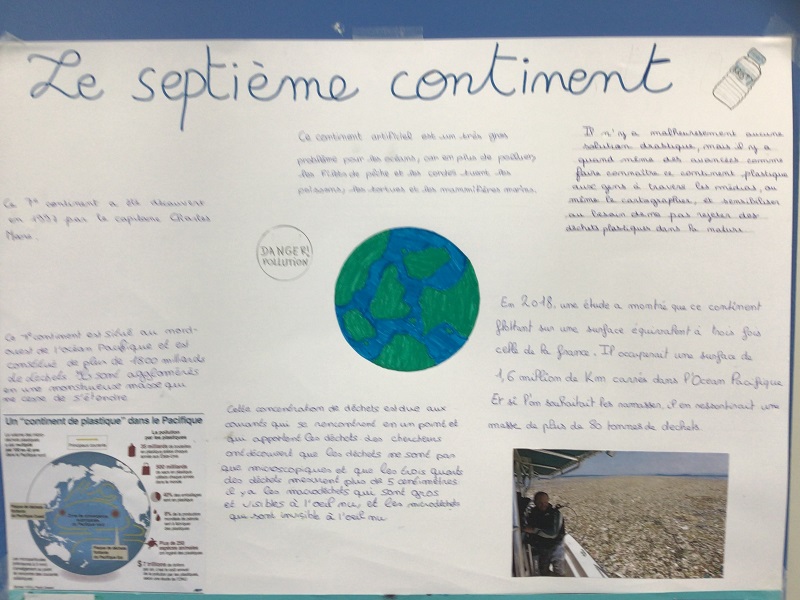 Le septième continent
Ce continent artificiel est un très gros
problème pour les océans, car en plus de polluer,
les filets de pêche et les cordes tuent les
poissons, les tortues et les mammifères marins.
Il n'y a malheureusement aucune
solution drastique, mais il y a
quand même des avancées comme
faire connaître ce continent plastique
aux gens à travers les médias, ou
même le cartographier, et sensibiliser
au besoin de ne pas rejeter des
déchets plastiques dans la nature.
Ce 7e continent a été découvert
en 1997 par le capitaine Charles
Moore.
DANGER!
POLLUTION
Ce 7e continent est situé au nord-
ouest de l'océan Pacifique et est
constitué de plus de 1800 milliards
de déchets. Ils sont agglomérés
en une monstrueuse masse qui
ne cesse de s'étendre.
En 2018, une étude a montré que ce continent
flottant sur une surface équivalent à trois fois
celle de la france. Il occuperait une surface de
1,6 million de Km carrés dans l'Ocean Pacifique
Et si l'on souhaitait les ramasser, il en ressortirait une
masse de plus de 80 tonnes de dechets.
Cette concentration de déchets est due aux
courants qui se rencontrent en un point et
qui apportent les déchets des chercheurs
ont découvert que les déchets ne sont pas
que microscopiques et que les trois quarts
des déchets mesurent plus de 5 centimètres
il y a les macrodéchets qui sont gros
et visibles à l'oeil nu, et les microdéchets
qui sont invisible à l'oeil nu
Un "continent de plastique" dans le Pacifique
La pollution
par les plastiques